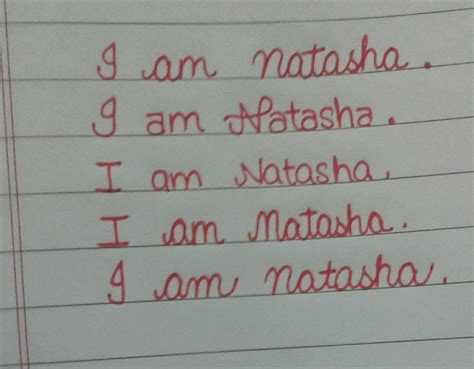 I am natasha.
I am Natasha.
I am Natasha.
I am Natasha.
I am natasha.